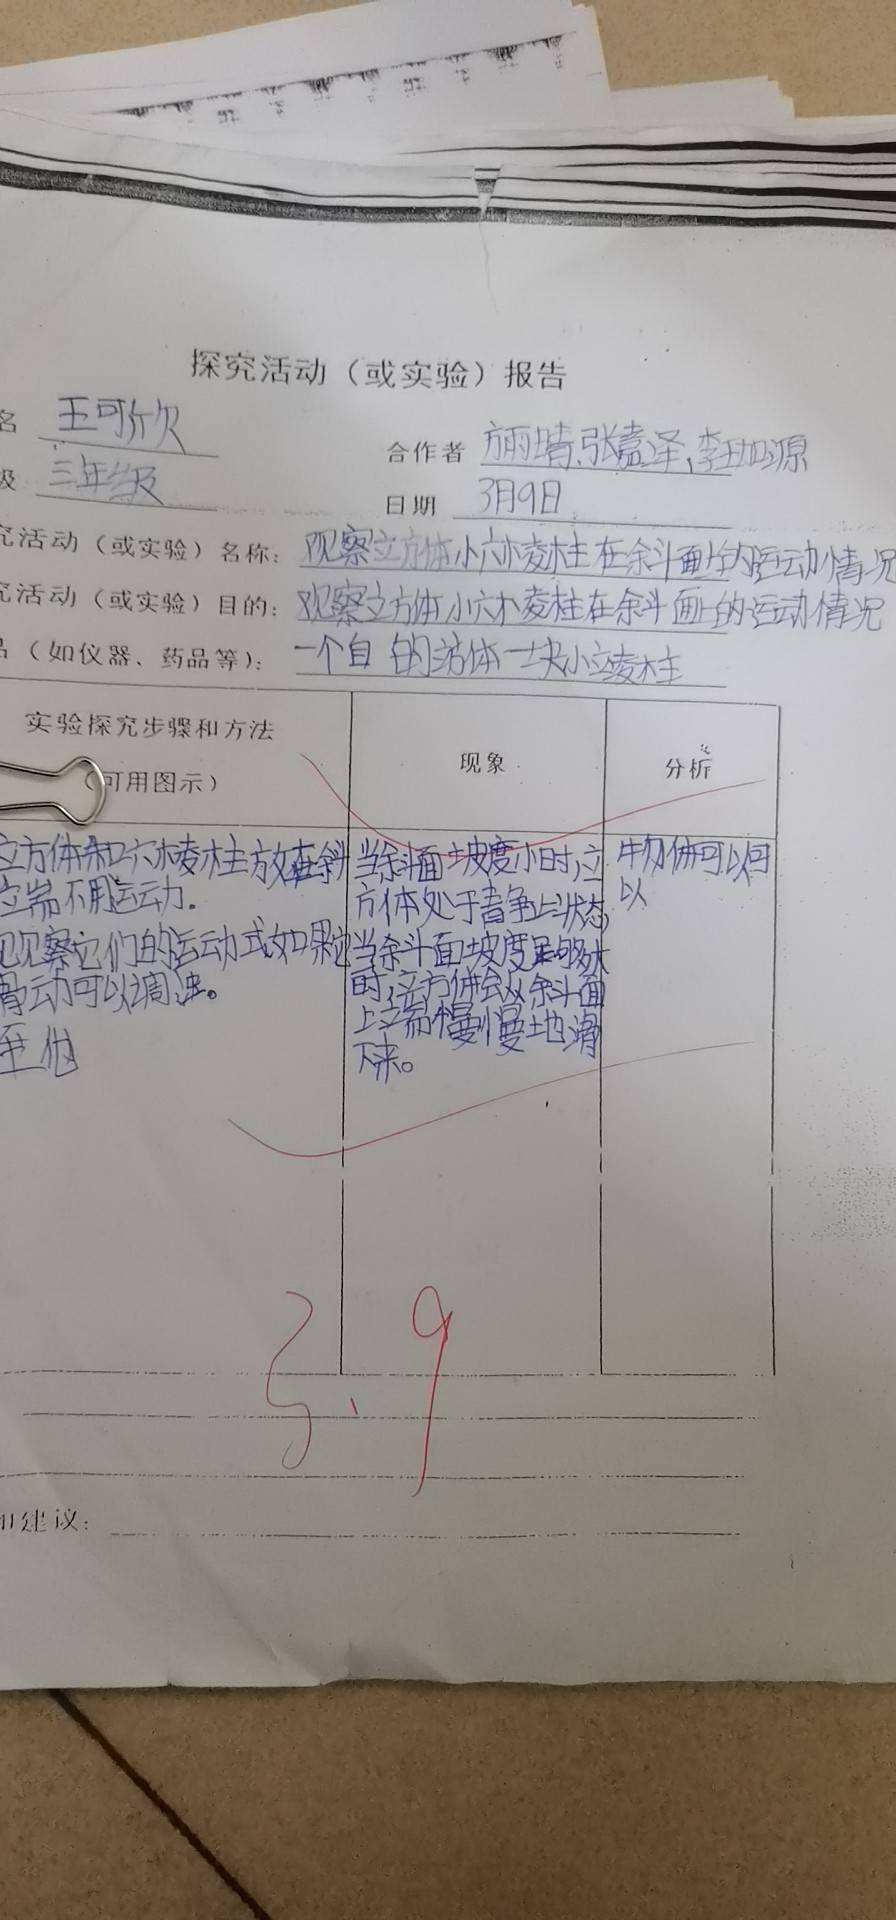 探究活动（或实验）报告
名 王可欣
合作者 方雨晴、张嘉泽、李珈源
级 三年级
日期 3月9日
究活动（或实验）名称：观察立方体小六棱柱在斜面上的运动情况
究活动（或实验）目的：观察立方体小六棱柱在斜面上的运动情况
品（如仪器、药品等）：一个自 的 体一块小 棱柱
实验探究步骤和方法
（可用图示）
现象
分析
立方体和六棱柱放在斜
立端不用运动.
观察它们的运动式如果它
滑动可以调 。
至他
当斜面坡度小时,立
方体处于静止状态
当斜面坡度足够大
时,立方体会从斜面
上立端慢慢地滑
下来。
物体可以可
以
3.9
和建议：